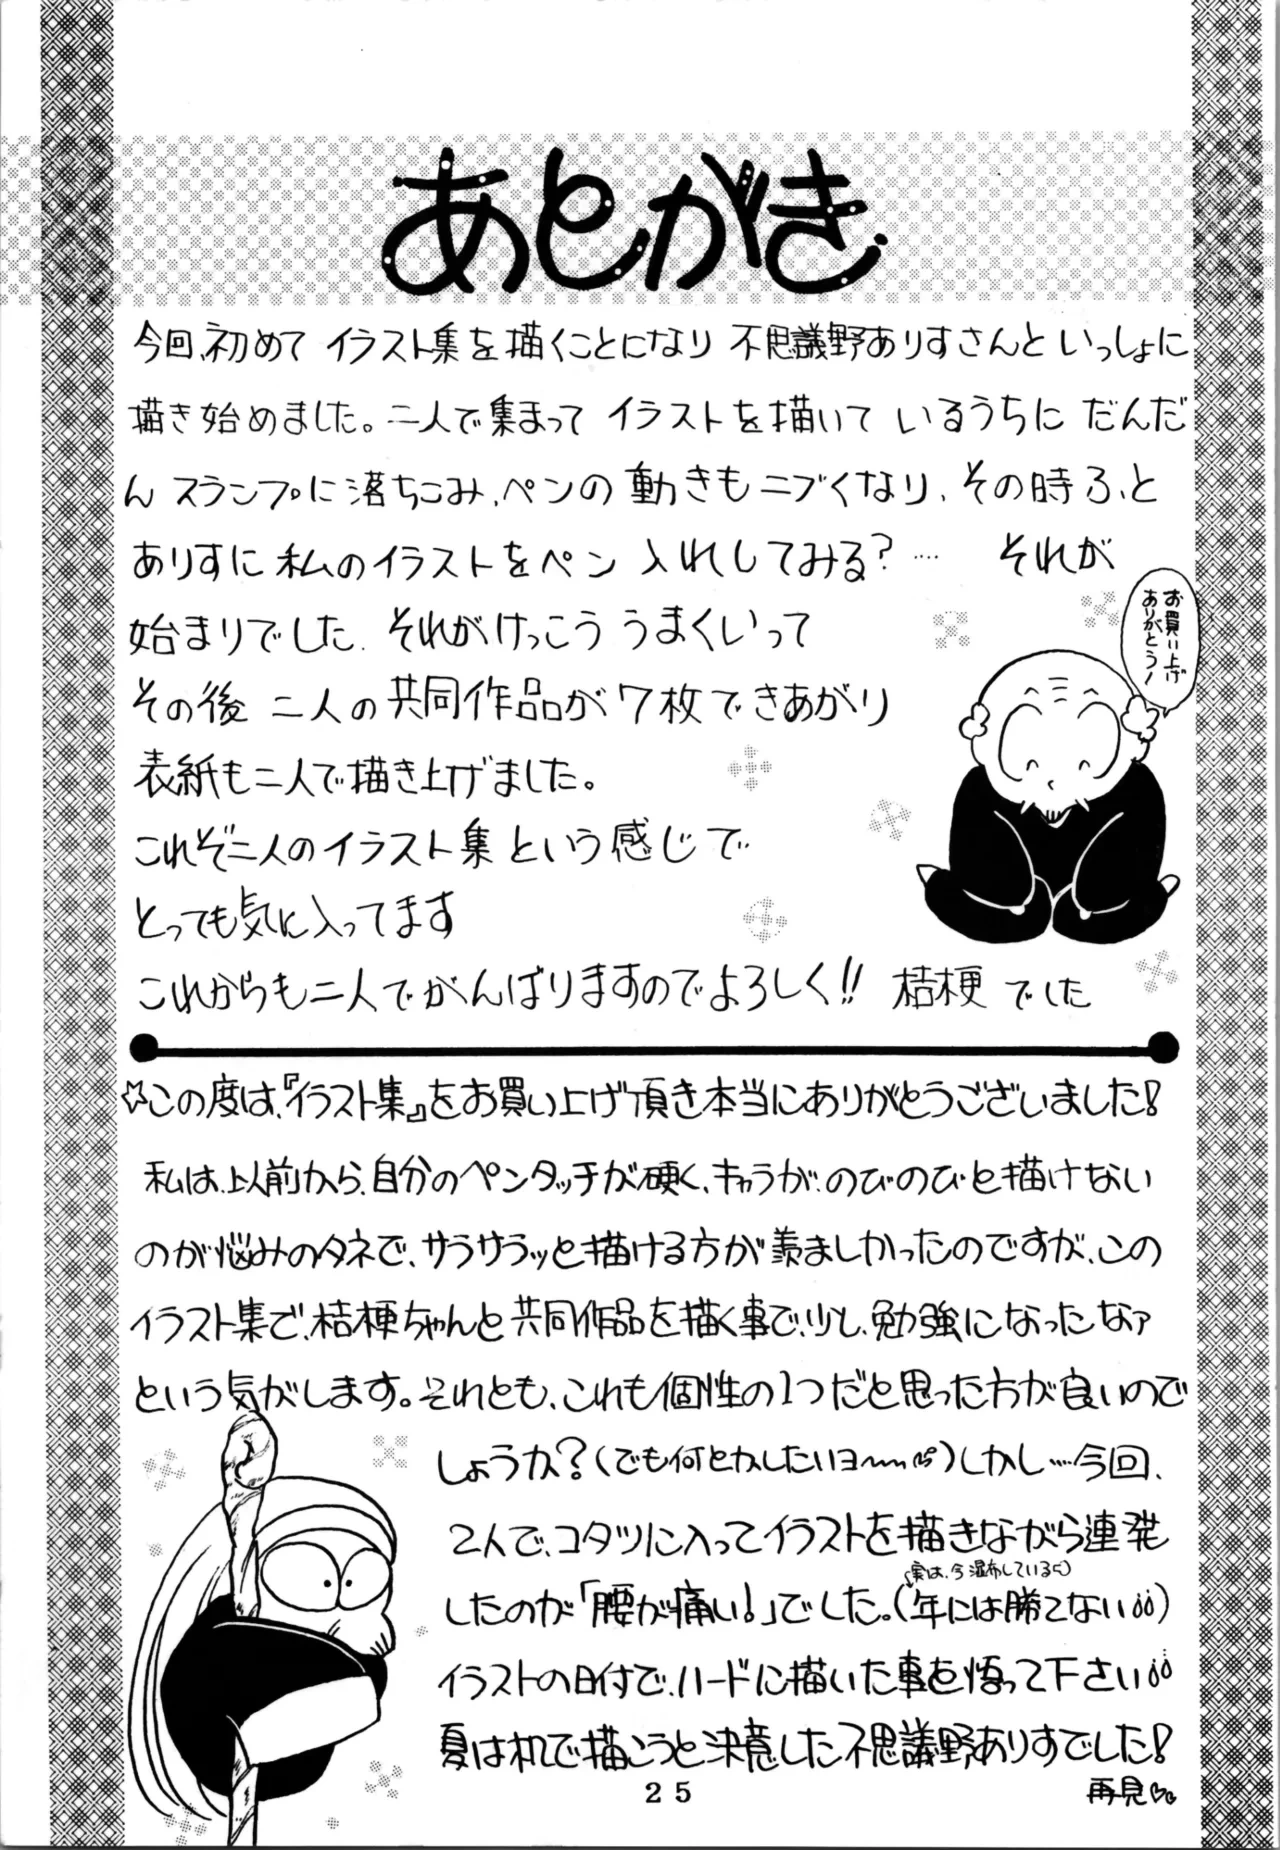 あとがき
今回、初めて イラスト集を描くことになり 不思議野ありすさんといっしょに
描き始めました。二人で集まって イラストを描いて いるうちに だんだ
ん スランプに落ちこみ、ペンの動きもニブくなり、その時ふと
ありすに私のイラストをペン 入れしてみる?…… それが
始まりでした。それがけっこううまくいって
その後 二人の共同作品が7枚できあがり
表紙も二人で描き上げました。
これぞ二人のイラスト集という感じで
とっても気に入ってます
これからも二人でがんばりますのでよろしく!! 桔梗でした
お買い上げ
ありがとう!
☆この度は、『イラスト集』をお買い上げ頂き本当にありがとうございました!
私は、以前から、自分のペンタッチが硬く、キャラが、のびのびと描けない
のが悩みのタネで、サラサラッと描ける方が羨ましかったのですが、この
イラスト集で、桔梗ちゃんと共同作品を描く事で、少し、勉強になったなァ
という気がします。それとも、これも個性の1つだと思った方が良いので
しょうか?(でも何とかしたいヨ〜〜)しかし……今回、
2人で、コタツに入ってイラストを描きながら連発
したのが「腰が痛い!」でした。(年には勝てない)
実は、今湿布している
イラストの日付で、ハードに描いた事を悟って下さい
夏はれで描こうと決意した不思議野ありすでした!
再見♡
25